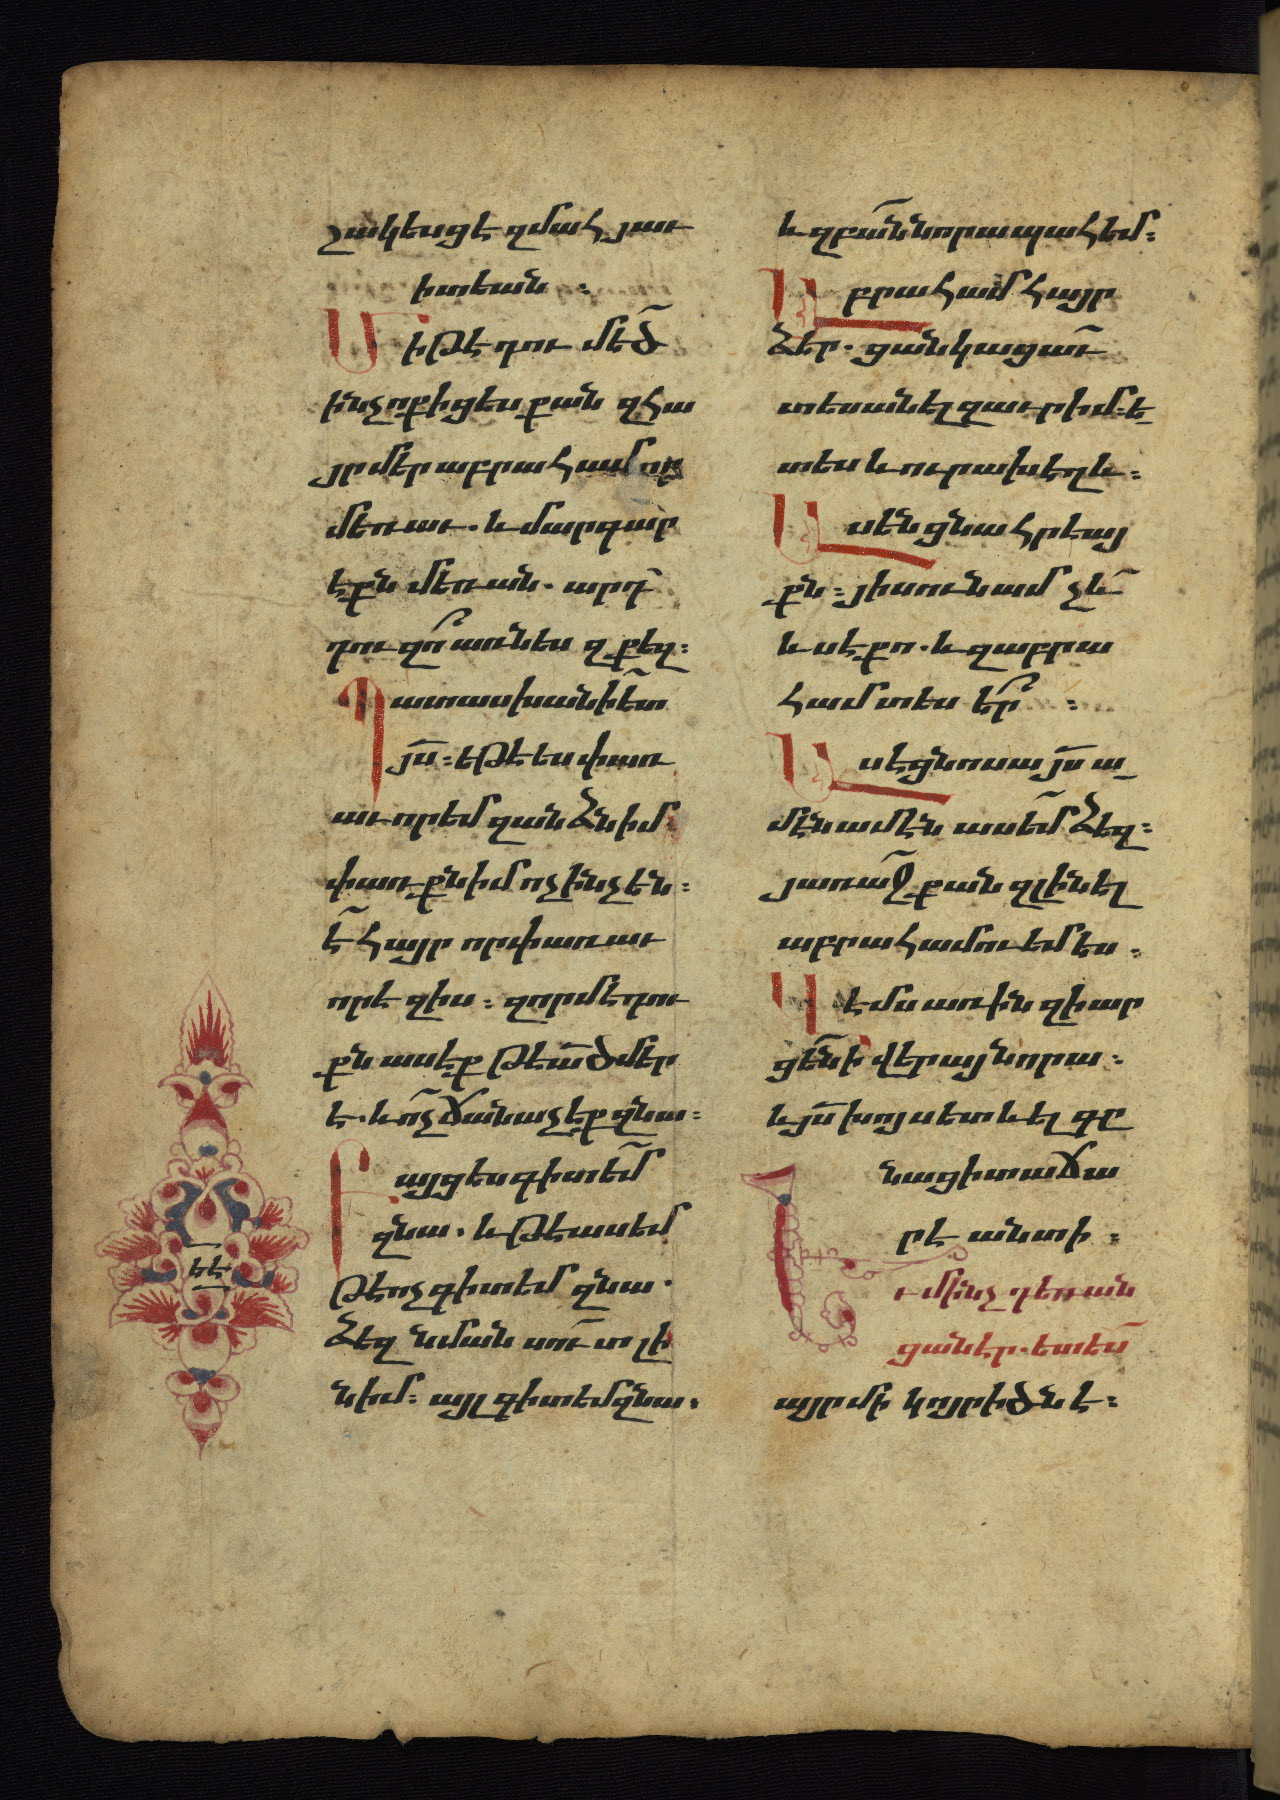 շակեսցէ զմահ յաւ
իտեան ։
Միթէ դու մեծ
ինչ ոք իցես քան զհա
յր մեր աբրահամ որ
մեռաւ. և մարգար
էքն մեռան. արդ
դու զո՞ առնես զքեզ։
Պատասխանի ետ
յս։ եթէ ես փառ
աւորեմ զանձն իմ.
փառքն իմ ոչինչ են։
է հայր որ փառաւ
որէ զիս։ զորմէ դու
քն ասէք թե ած մեր
է. և ոչ ճանաչէք զնա։
Բայց ես գիտեմ
զնա. և թե ասեմ
թե ոչ գիտեմ զնա.
ձեզ նման սուտ լի
նիմ։ այլ գիտեմ զնա.
և զբան նորա պահեմ։
Աբրահամ հայր
ձեր. ցանկացաւ
տեսանել զաւր իմ։ ե
տես և ուրախ եղև։
Ասեն ցնա հրէայ
քն։ յիսուն ամ չև
ևս է քո. և զաբրա
համ տես եր ։
Ասէ ցնոսա յս ա
մէն ամէն ասեմ ձեզ։
յառաջ քան զլինել
աբրահամու եմ ես։
Վէմս առին զի ար
ցեն ի վերայ նորա։
և յս խոյս ետ և ել գը
նաց ի տաճա
րէ անտի ։
Եւ մինչ դեռ ան
ցանէր. ետես
այր մի կոյր ի ծնէ։
եե